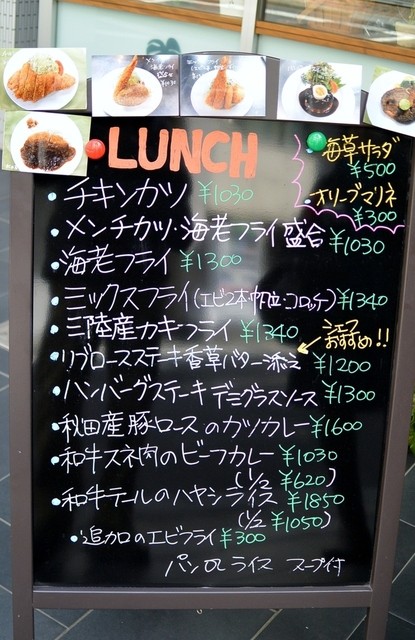 LUNCH
海草サラダ
¥500
オリーブマリネ
¥300
チキンカツ ¥1030
メンチカツ・海老フライ盛合 ¥1030
海老フライ ¥1300
ミックスフライ(エビ2本・帆立・コロッケ) ¥1340
三陸産カキフライ ¥1340
シェフおすすめ!!
リブロースステーキ香草バター添え ¥1200
ハンバーグステーキデミグラスソース ¥1300
秋田産豚ロースのカツカレー ¥1600
和牛スネ肉のビーフカレー ¥1030
(1/2 ¥620)
和牛テールのハヤシライス ¥1850
(1/2 ¥1050)
追加のエビフライ ¥300
パン or ライス スープ付